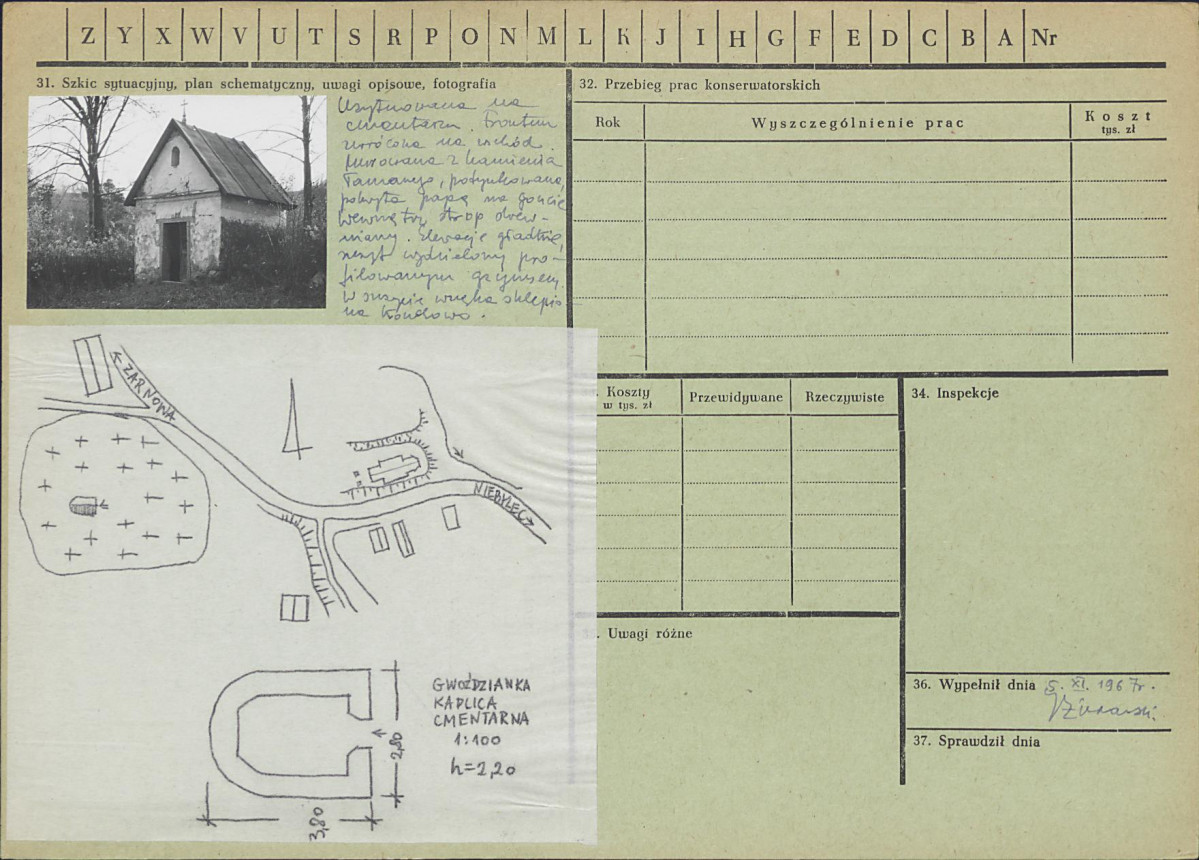 Z Y X W V U T S R P O N M L K J I H G F E D C B A Nr
31. Szkic sytuacyjny, plan schematyczny, uwagi opisowe, fotografia
Usytuowana na
cmentarzu. Frontem
zwrócona na wschód.
Murowana z kamienia
łamanego, potynkowana,
pokryta papą na goncie
wewnątrz strop drew-
niany. Elewacje gładkie,
szczyt wydzielony pro-
filowanym gzymsem.
W szczycie wnęka sklepio
na konchowo.
ŻARNOWA
NIEBYLEC
GWOŹDZIANKA
KAPLICA
CMENTARNA
1:100
h=2,20
2,80
3,80
32. Przebieg prac konserwatorskich
Rok
Wyszczególnienie prac
Koszt
tys. zł
. Koszty
w tys. zł
Przewidywane
Rzeczywiste
34. Inspekcje
. Uwagi różne
36. Wypełnił dnia 5. XI. 1967r.
37. Sprawdził dnia